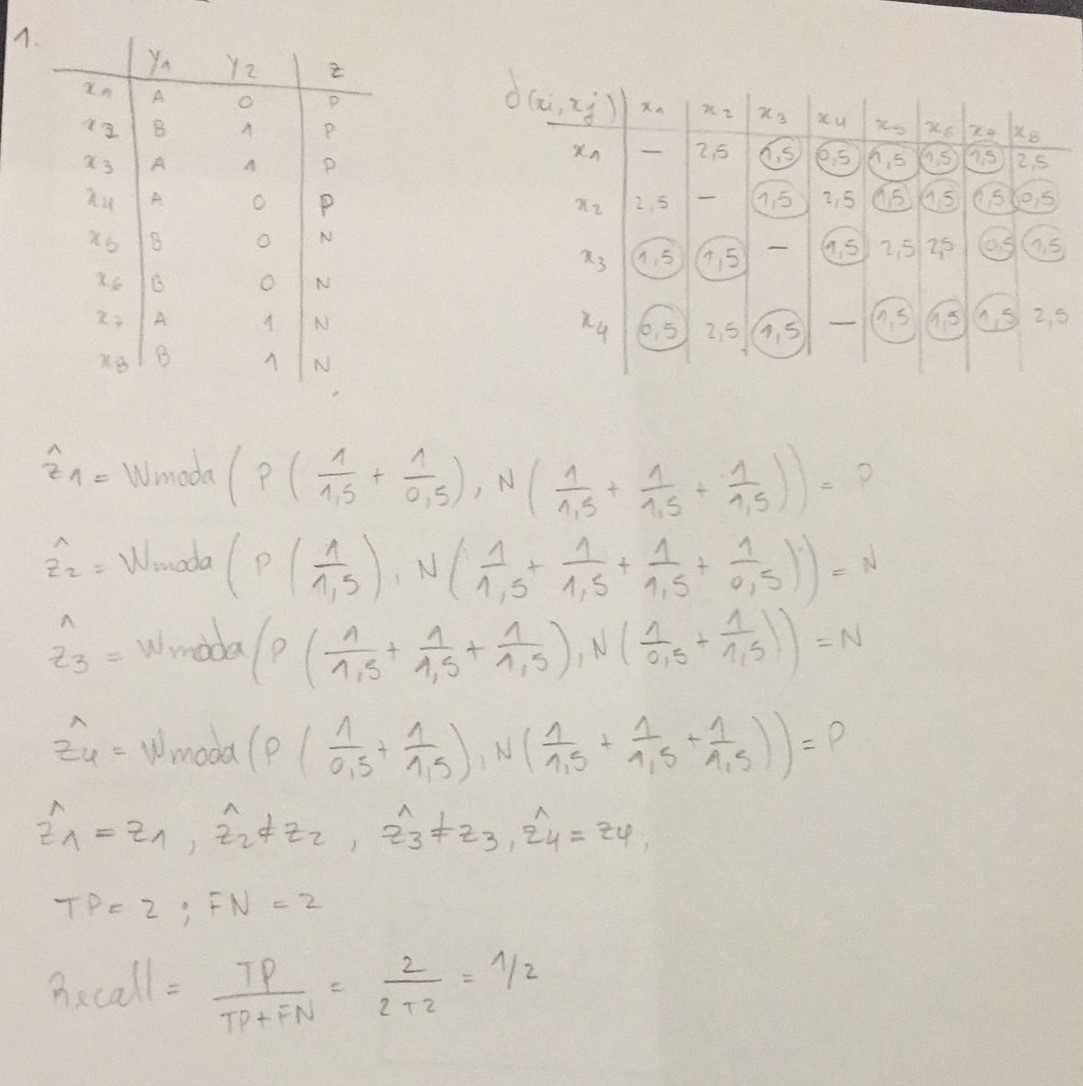 1.
y1 y2 z
x1 A 0 P
x2 B 1 P
x3 A 1 P
x4 A 0 P
x5 B 0 N
x6 B 0 N
x7 A 1 N
x8 B 1 N
d(xi, xj) x1 x2 x3 x4 x5 x6 x7 x8
x1 – 2,5 1,5 0,5 1,5 1,5 1,5 2,5
x2 2,5 – 1,5 2,5 1,5 1,5 1,5 0,5
x3 1,5 1,5 – 1,5 2,5 2,5 0,5 1,5
x4 0,5 2,5 1,5 – 1,5 1,5 1,5 2,5
ẑ1 = Wmoda(P(1/1,5 + 1/0,5), N(1/1,5 + 1/1,5 + 1/1,5)) = P
ẑ2 = Wmoda(P(1/1,5), N(1/1,5 + 1/1,5 + 1/1,5 + 1/0,5)) = N
ẑ3 = Wmoda(P(1/1,5 + 1/1,5 + 1/1,5), N(1/0,5 + 1/1,5)) = N
ẑ4 = Wmoda(P(1/0,5 + 1/1,5), N(1/1,5 + 1/1,5 + 1/1,5)) = P
ẑ1 = z1, ẑ2 ≠ z2, ẑ3 ≠ z3, ẑ4 = z4,
TP = 2 ; FN = 2
Recall = TP/(TP+FN) = 2/(2+2) = 1/2